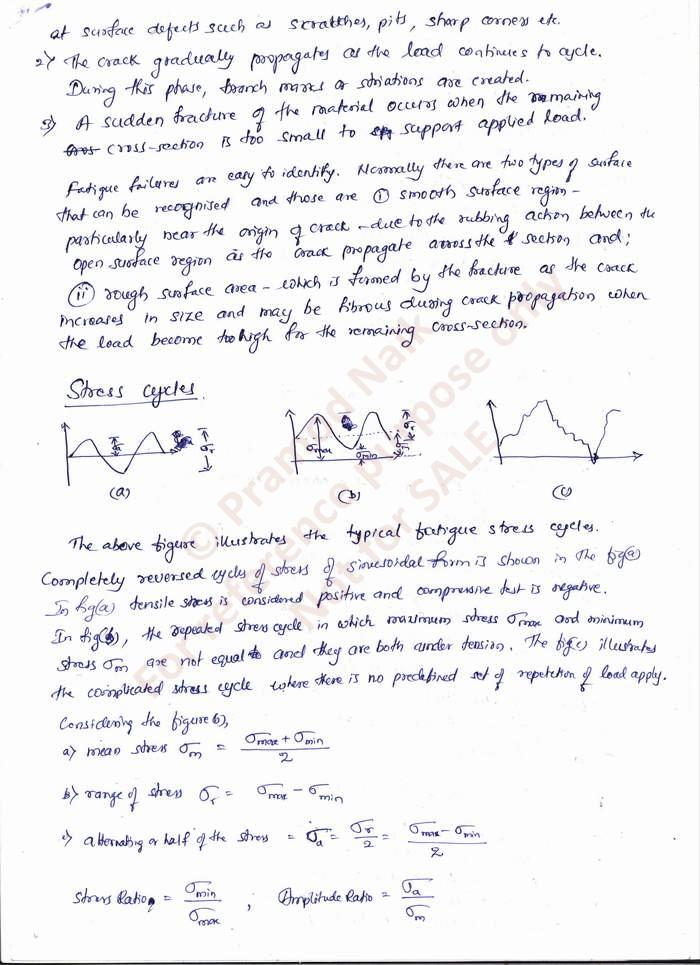 at surface defects such as scratches, pits, sharp corners etc.
2) The crack gradually propagates as the load continues to cycle.
During this phase, branch marks or striations are created.
3) A sudden fracture of the material occurs when the remaining
cross-section is too small to support applied load.
Fatigue failures are easy to identify. Normally there are two types of surface
that can be recognised and those are (i) smooth surface region -
particularly near the origin of crack - due to the rubbing action between the
open surface region as the crack propagate across the section and;
(ii) rough surface area - which is formed by the fracture as the crack
increases in size and may be fibrous during crack propagation when
the load become too high for the remaining cross-section.
Stress cycles.
σa σr
σmax σmin
(a) (b) (c)
The above figure illustrates the typical fatigue stress cycles.
Completely reversed cycles of stress of sinusoidal form is shown in the fig(a)
In fig(a) tensile stress is considered positive and compressive test is negative.
In fig(b), the repeated stress cycle in which maximum stress σmax and minimum
stress σm are not equal to and they are both under tension. The fig(c) illustrates
the complicated stress cycle where there is no predefined set of repetction of load apply.
Considering the figure b),
a) mean stress σm = (σmax + σmin)/2
b) range of stress σr = σmax - σmin
c) alternating or half of the stress = σa = σr/2 = (σmax - σmin)/2
Stress Ratio, = σmin/σmax ; Amplitude Ratio = σa/σm
© Pramod Naik
For reference purpose only
Not for SALE